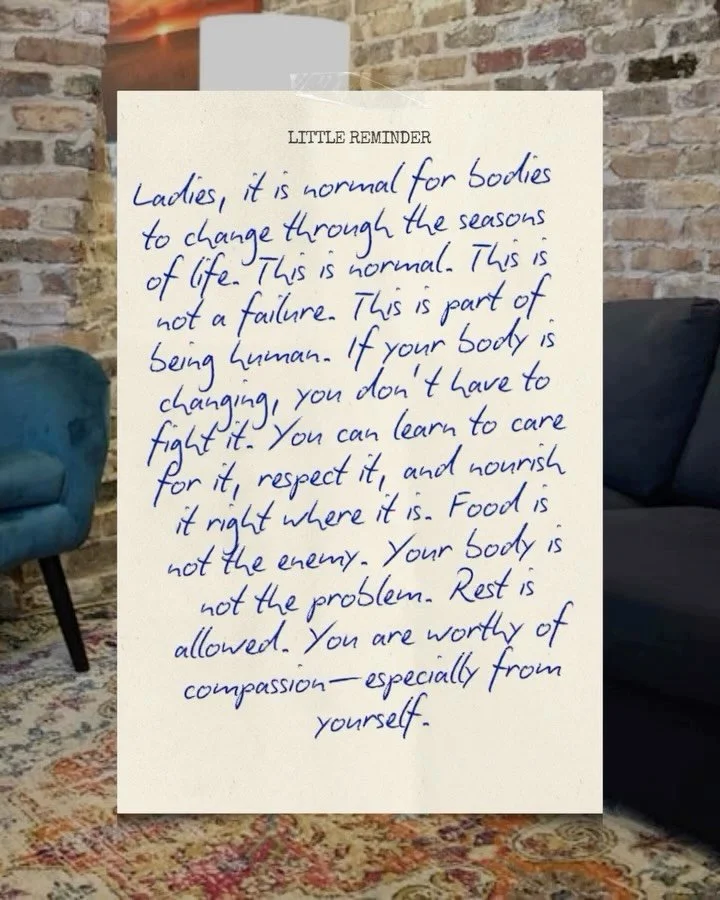 LITTLE REMINDER
Ladies, it is normal for bodies
to change through the seasons
of life. This is normal. This is
not a failure. This is part of
being human. If your body is
changing, you don't have to
fight it. You can learn to care
for it, respect it, and nourish
it right where it is. Food is
not the enemy. Your body is
not the problem. Rest is
allowed. You are worthy of
compassion—especially from
yourself.